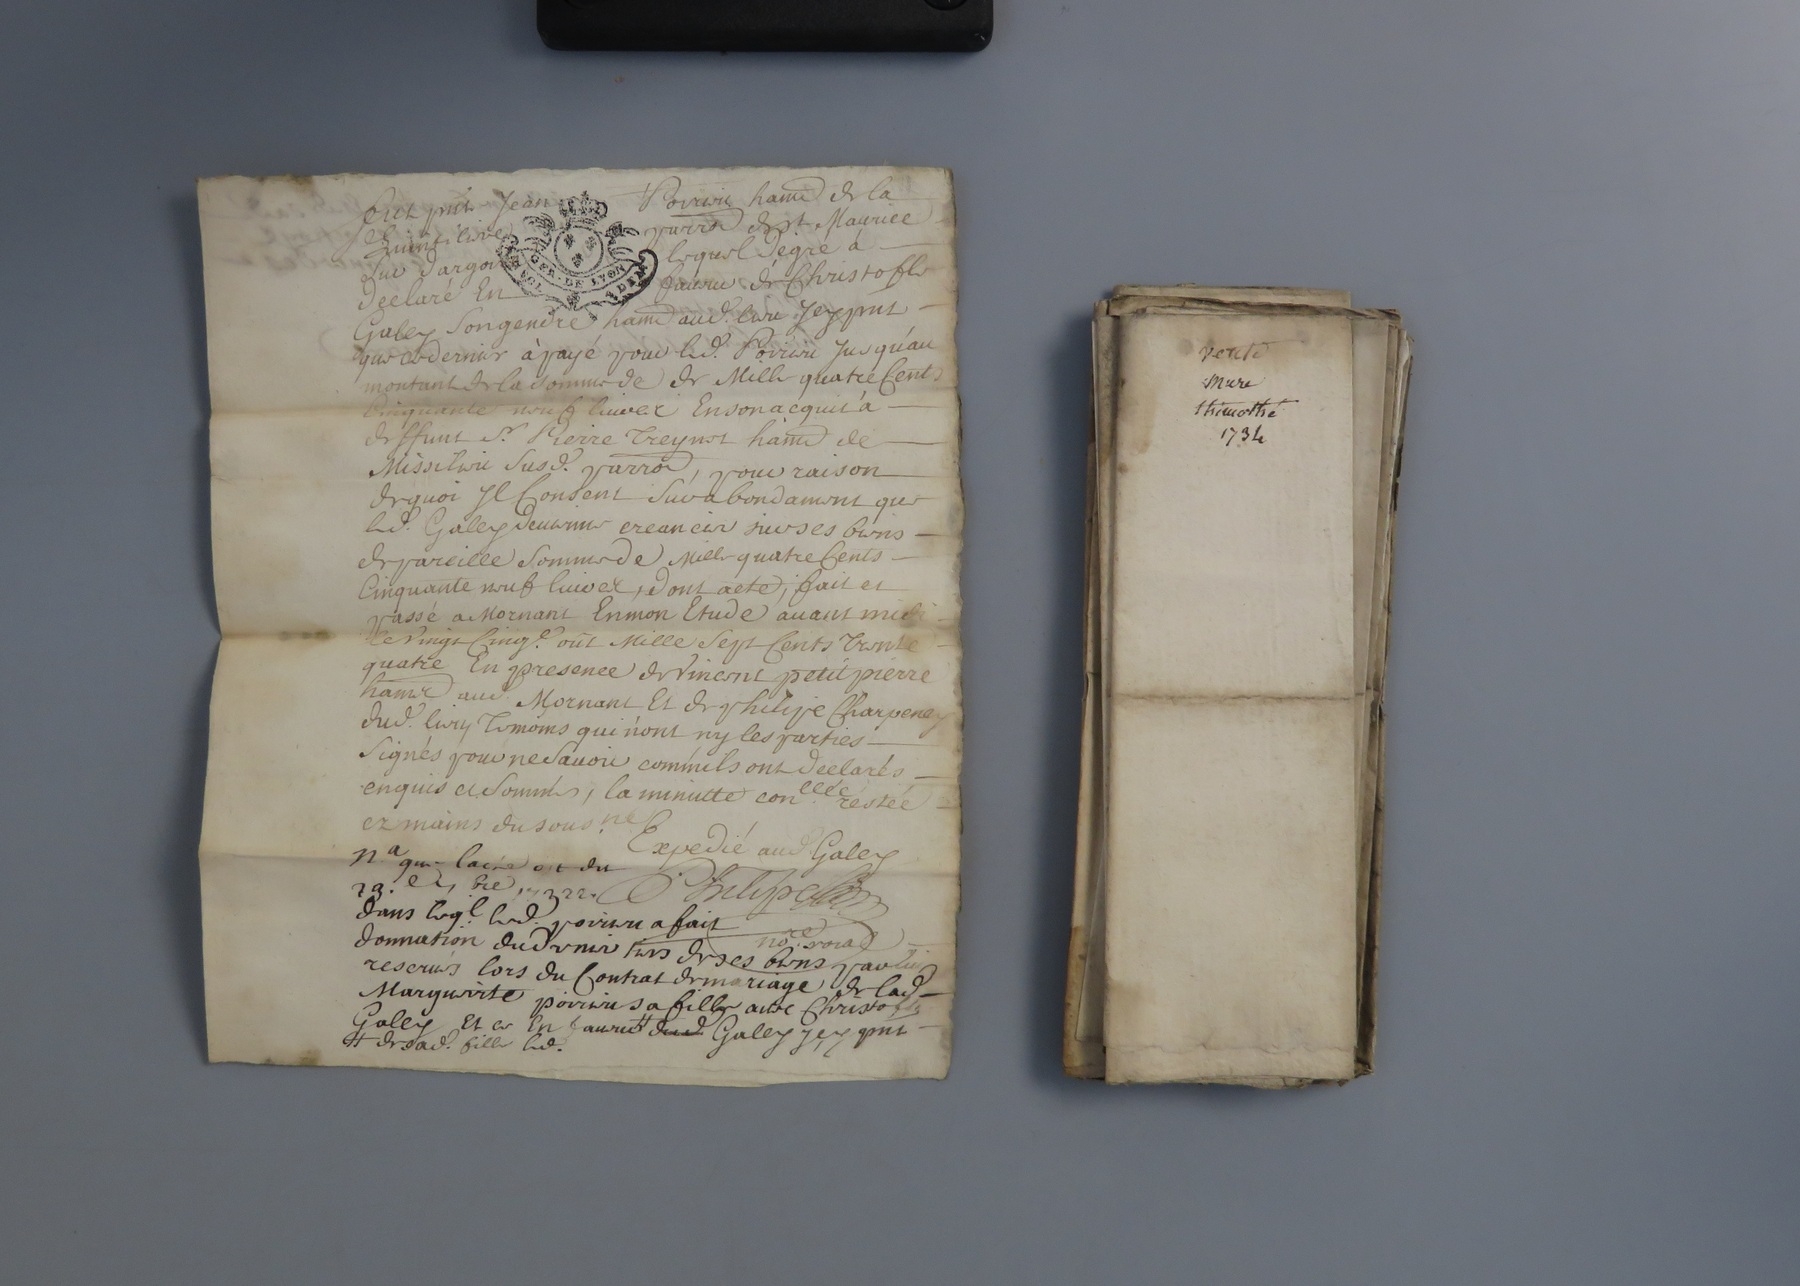 fut pnt Jean Poirieu hañt de la
parro de st Maurice
sur dargoire lequel degré à
declaré En faveur de Christofle
Galey Songendre hañt aud. lieu Jcy pnt
que ce dernier à payé pour led. Poirieu Jusqu'au
montant de la somme de de Mille quatre Cents
Cinquante neuf livres En son acquit à
deffunt Sr. Pierre Treynet hañt de
Missilieu susd. parro, pour raison
de quoi Jl Consent Surabondament que
led. Galey deuienne creancier sur ses biens
de pareille Somme de Mille quatre Cents
Cinquante neuf livres, dont acte, fait et
passé a Mornant En mon Etude avant midi
Le Vingt Cinqe. oût Mille Sept Cents Trente
quatre En presence de Vincent petitpierre
hañt aud. Mornant Et de philipe Charpenay
dud. lieu Temoins qui n'ont ny les parties
Signés pour ne Savoir comm'ils ont declarés
enquis et Sommés, la minutte conllée restée
ez mains du sous.né
Expedié aud Galey
Na que lacte est du
Philipe
dans leql. led. poirieu a fait
nore. roial
donnation du dernier tiers de ses biens par luy
reservés lors du Contrat de mariage de lad
Marguerite poirieu sa fille avec Christofle
Galey Et ce En faveur # dud Galey Jcy pnt
# de sad. fille led.
GER. DE LYON
vente
Mure
thimothé
1734